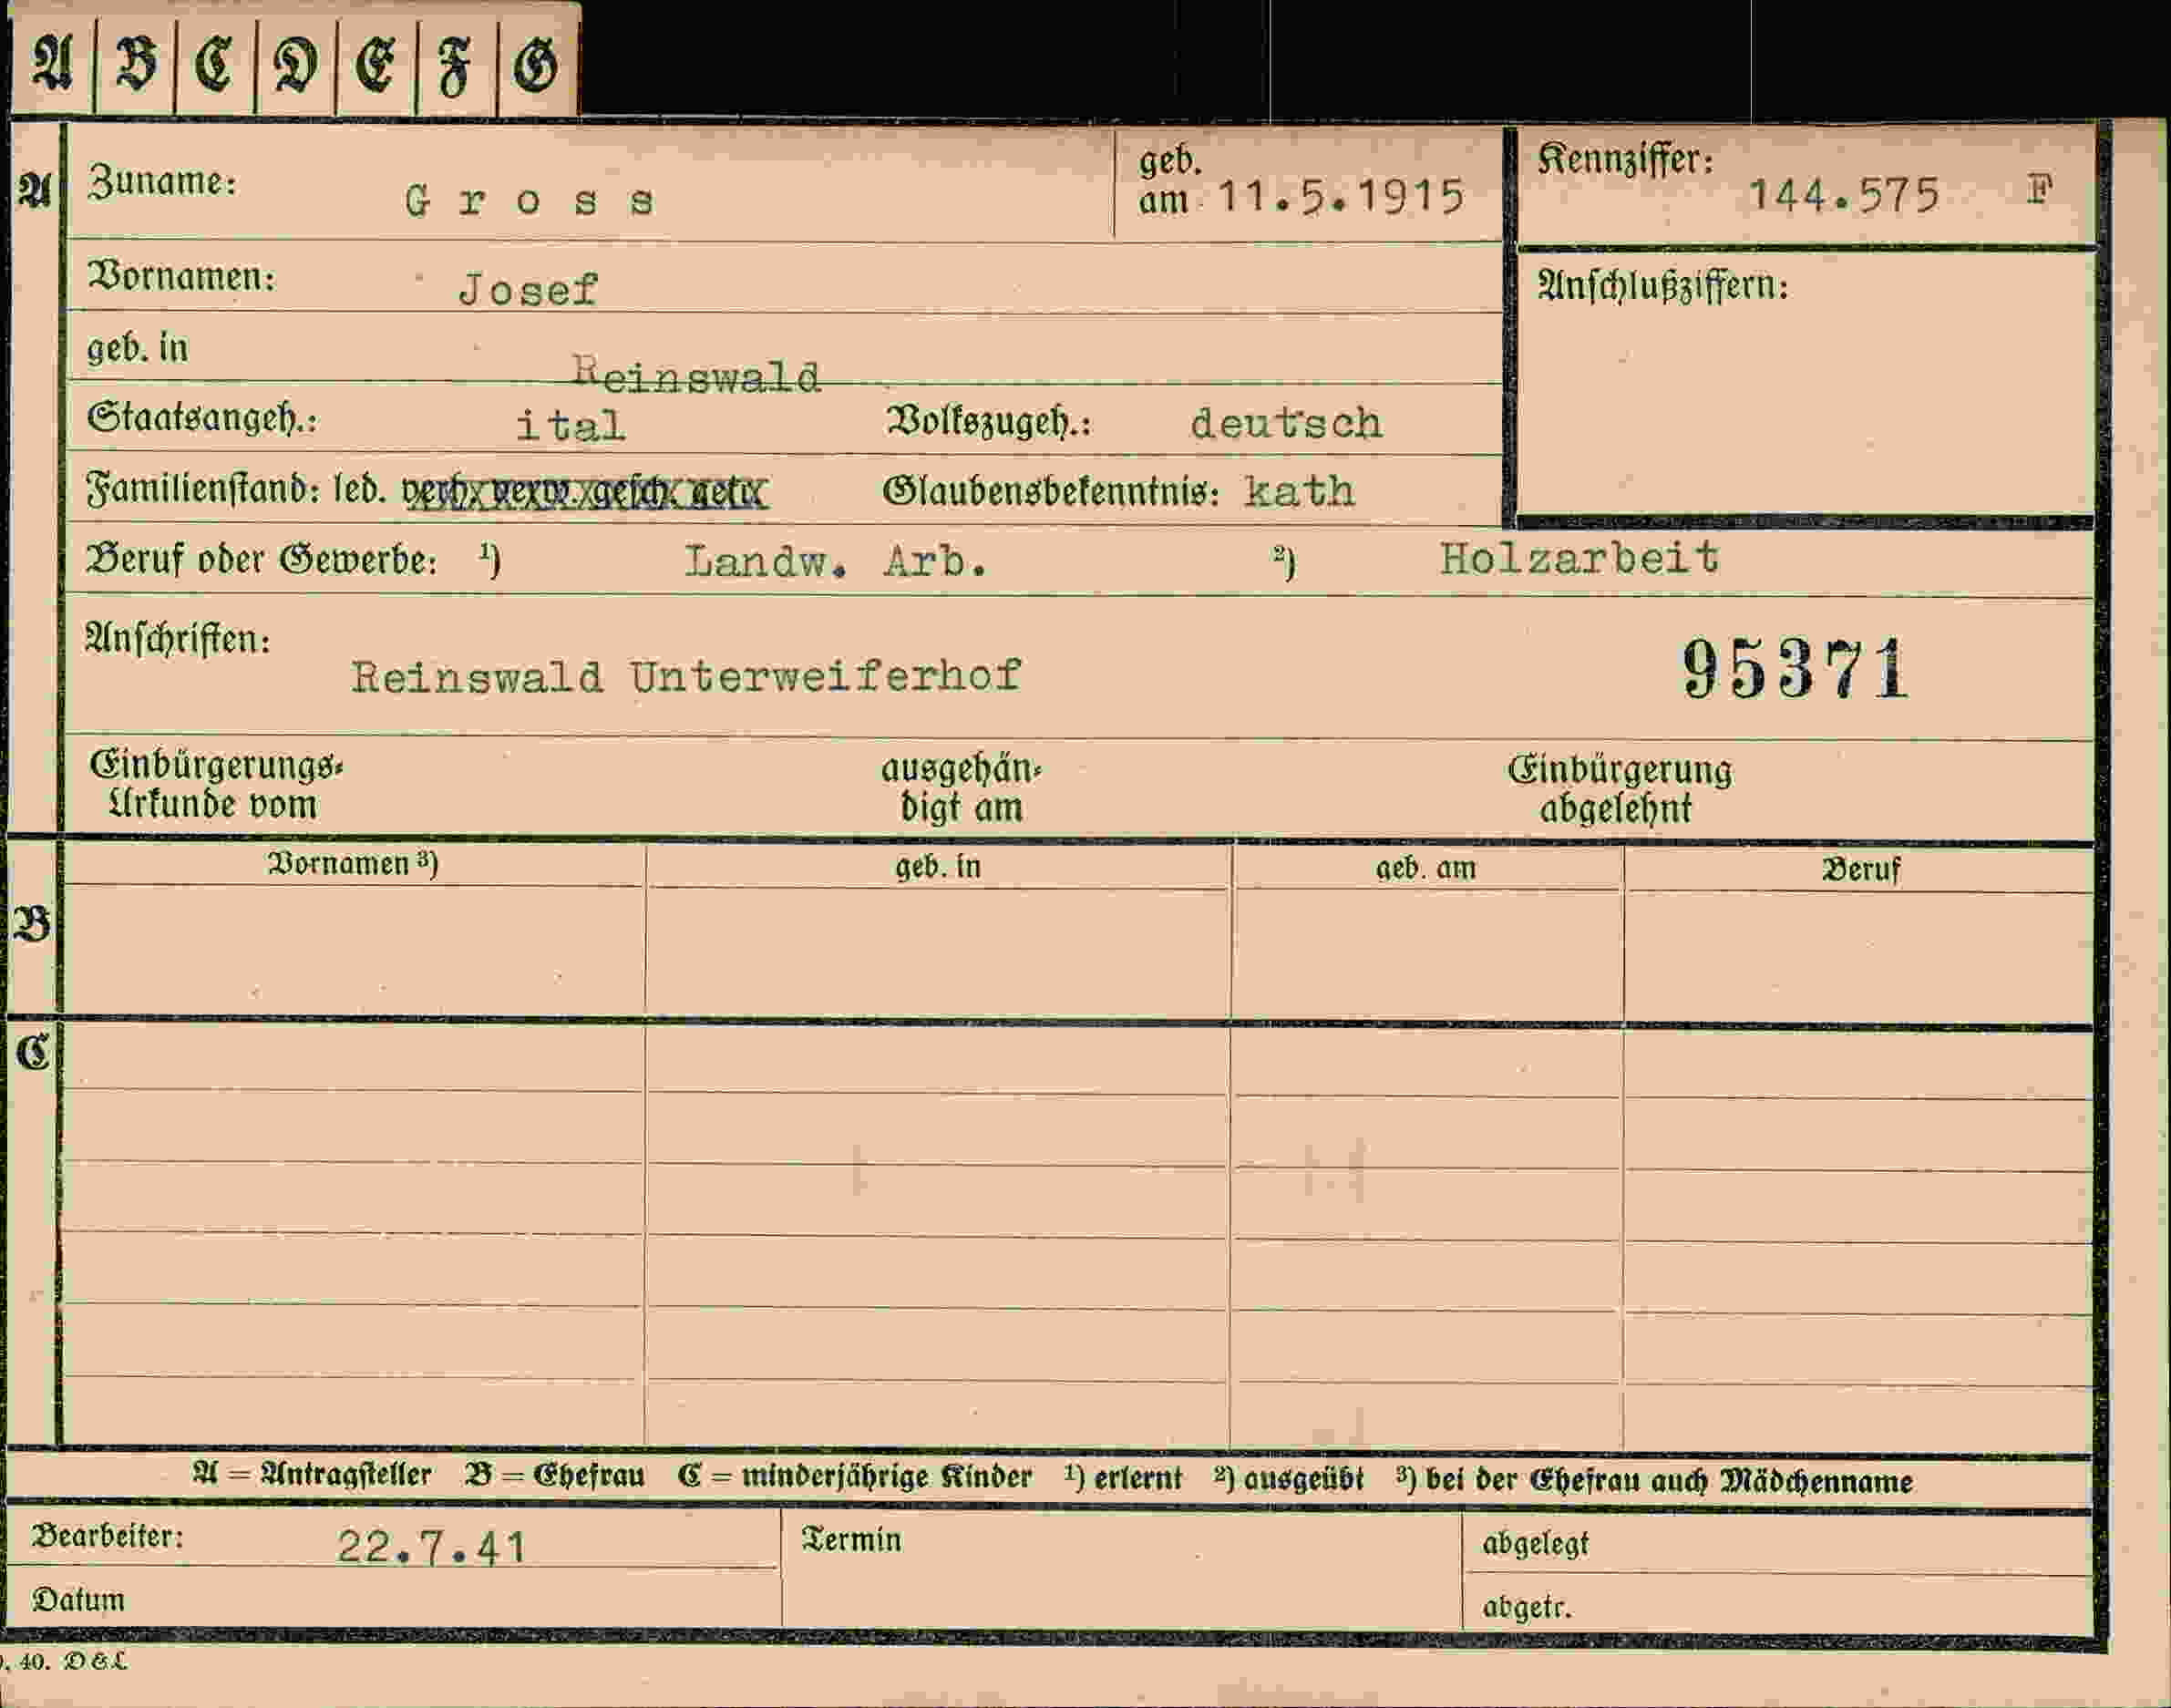 A B C D E F G
A Zuname: Gross geb. am 11.5.1915 Kennziffer: 144.575 F
Vornamen: Josef Anschlußziffern:
geb. in Reinswald
Staatsangeh.: ital Volkszugeh.: deutsch
Familienstand: led. verh. verw. gesch. getr. Glaubensbekenntnis: kath
Beruf oder Gewerbe: ¹) Landw. Arb. ²) Holzarbeit
Anschriften:
Reinswald Unterweiferhof 95371
Einbürgerungs- ausgehän- Einbürgerung
Urkunde vom digt am abgelehnt
Vornamen ³) geb. in geb. am Beruf
B
C
A = Antragsteller B = Ehefrau C = minderjährige Kinder ¹) erlernt ²) ausgeübt ³) bei der Ehefrau auch Mädchenname
Bearbeiter: 22.7.41 Termin abgelegt
Datum abgetr.
40. D&L